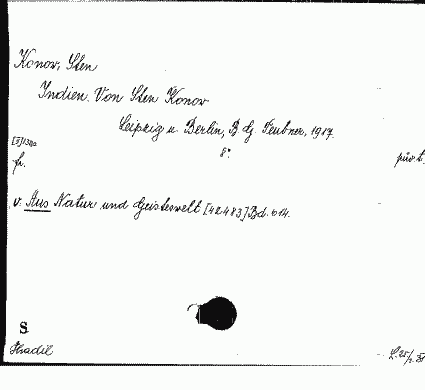 Konow, Sten
Indien. Von Sten Konow
Leipzig u. Berlin, B. G. Teubner, 1917.
8°.
fr.
v. Aus Natur und Geisteswelt [42483] Bd. 614.
S
Hradil